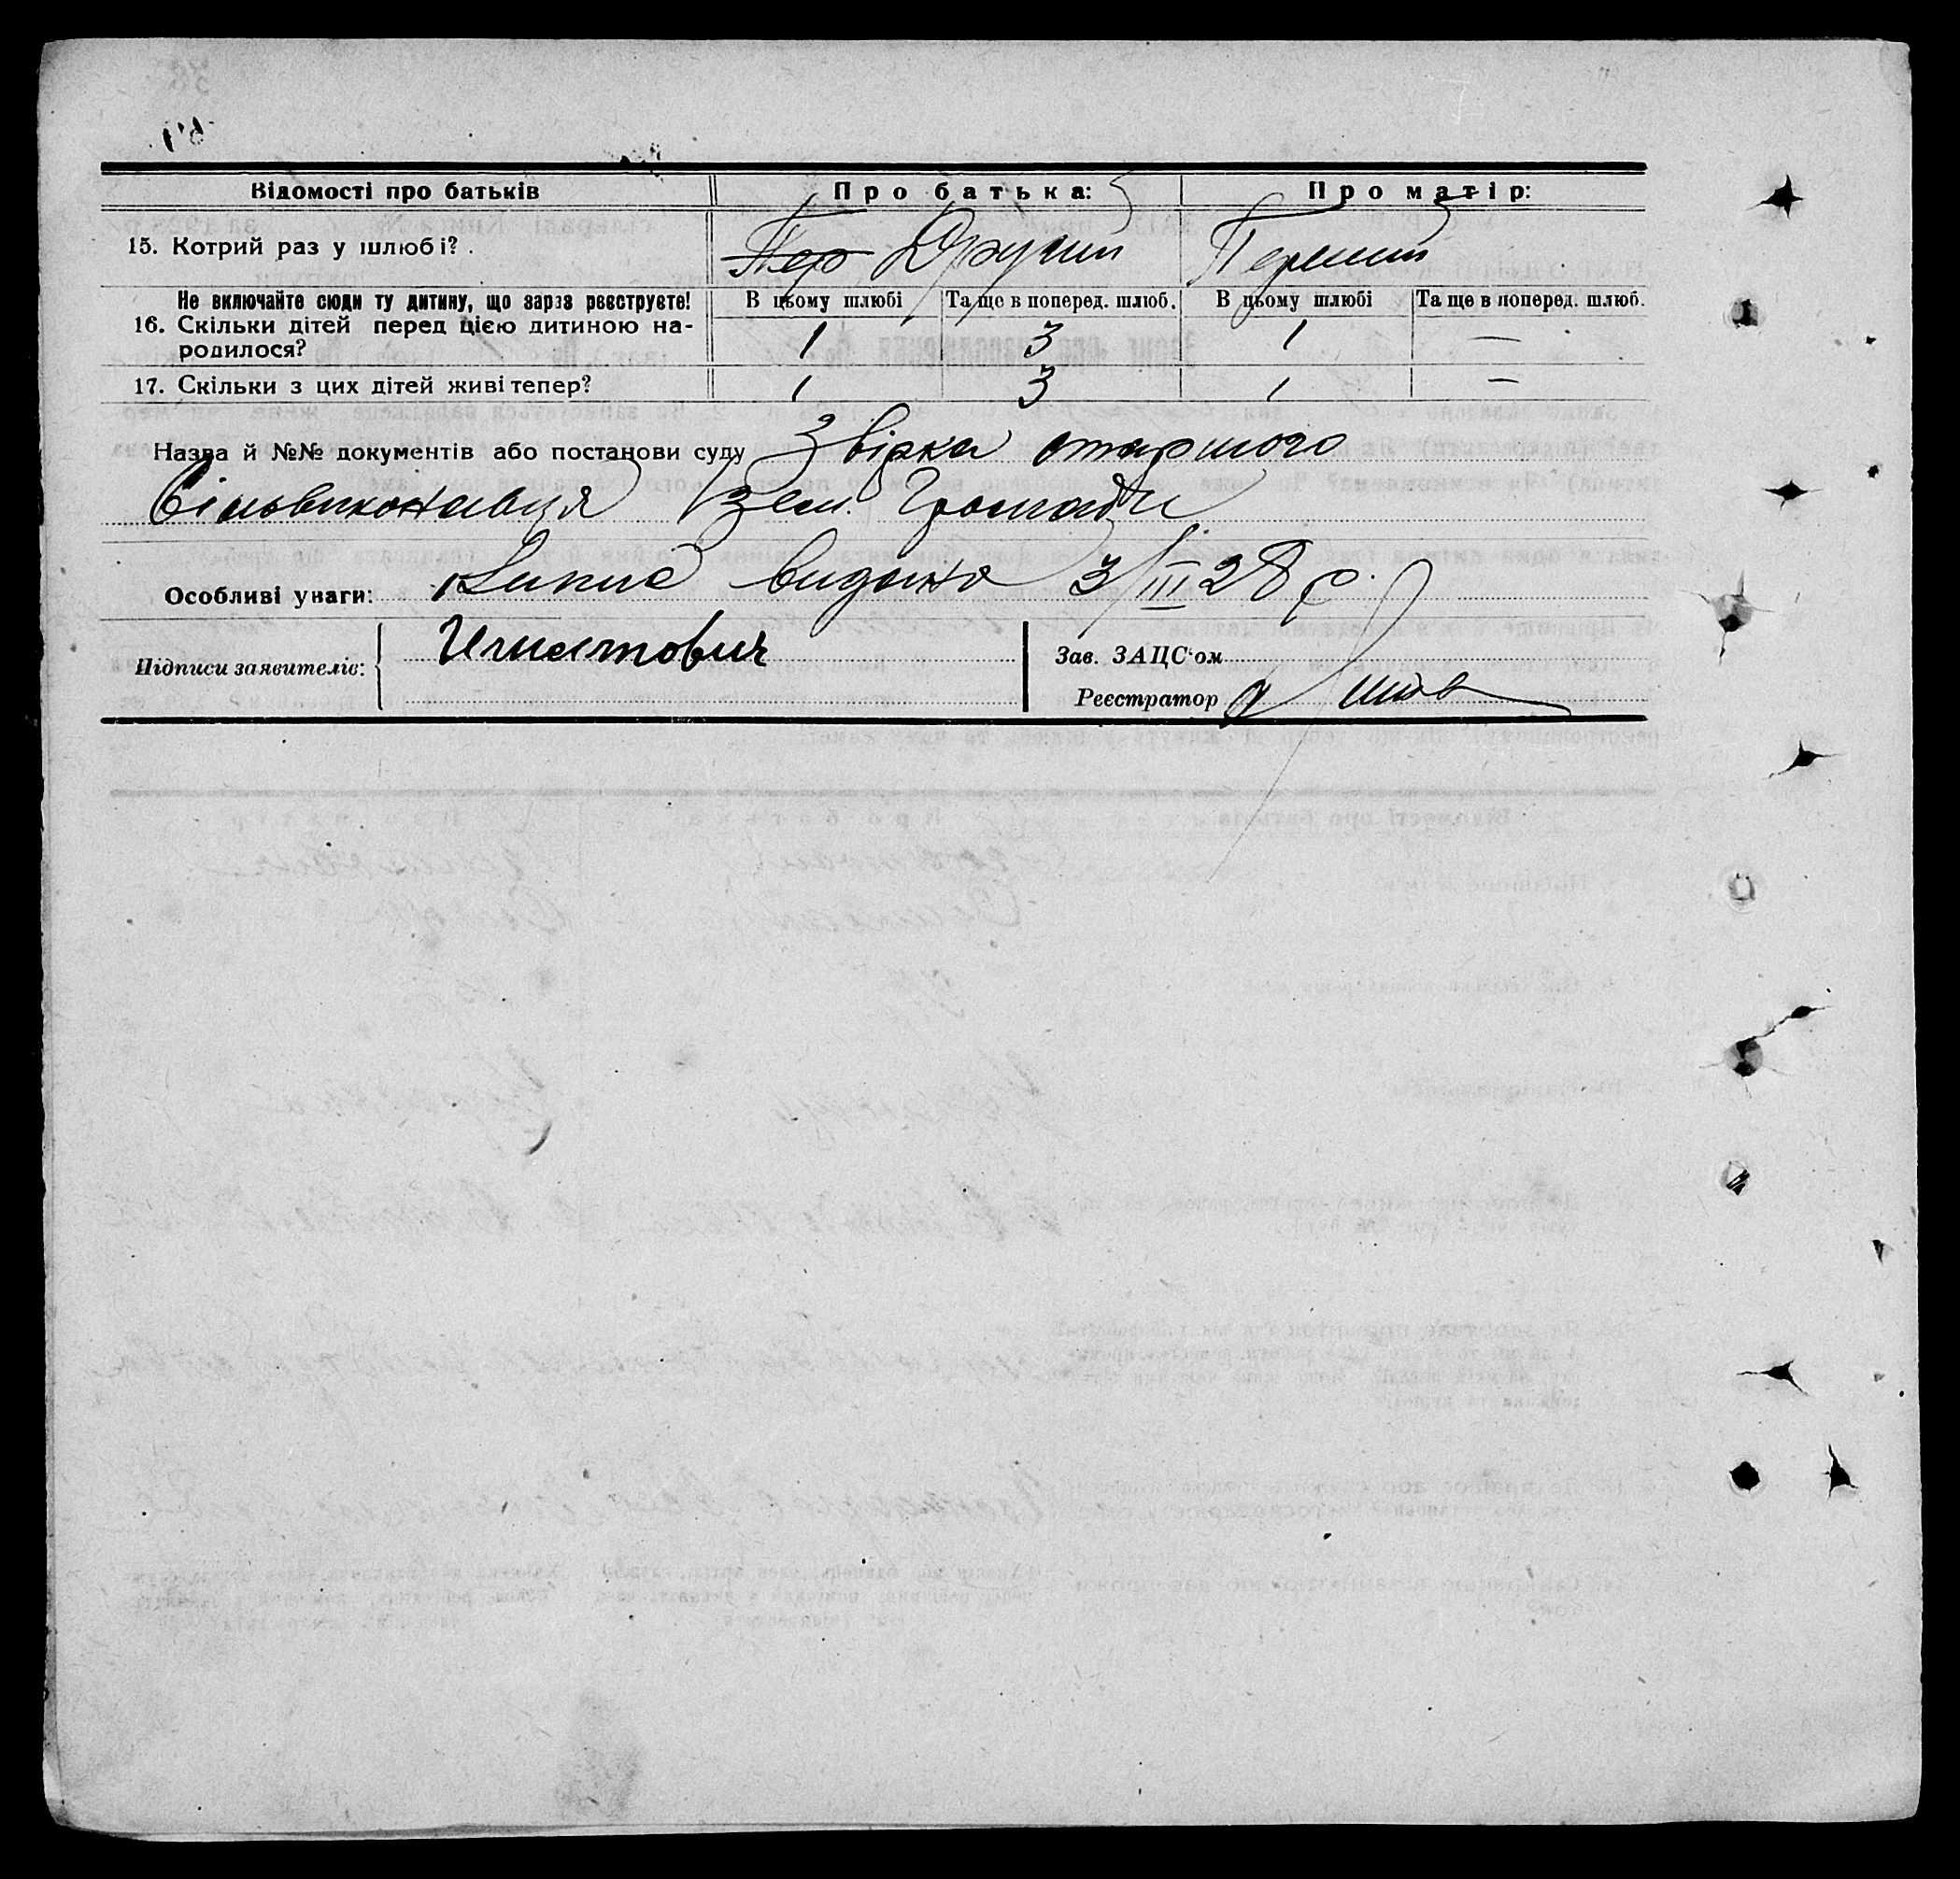 Відомості про батьків Про батька: Про матір:
15. Котрий раз у шлюбі? Пер Другий Первий
Не включайте сюди ту дитину, що зараз реєструєте! В цьому шлюбі Та ще в поперед. шлюб. В цьому шлюбі Та ще в поперед. шлюб.
16. Скільки дітей перед цією дитиною на-
родилося? 1 3 1 —
17. Скільки з цих дітей живі тепер? 1 3 1 —
Назва й №№ документів або постанови суду Звірка старшого
Сільвиконавця Зем. Громади
Особливі уваги: Випис видано 3/III 28 р.
Підписи заявителів: Игнатович Зав. ЗАЦС'ом
Реєстратор